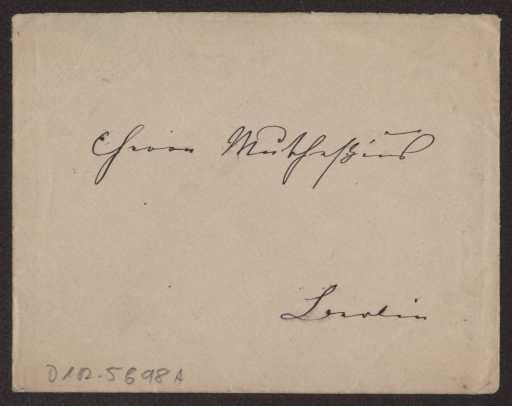 Herrn Muthesius
Berlin
D102-5698A